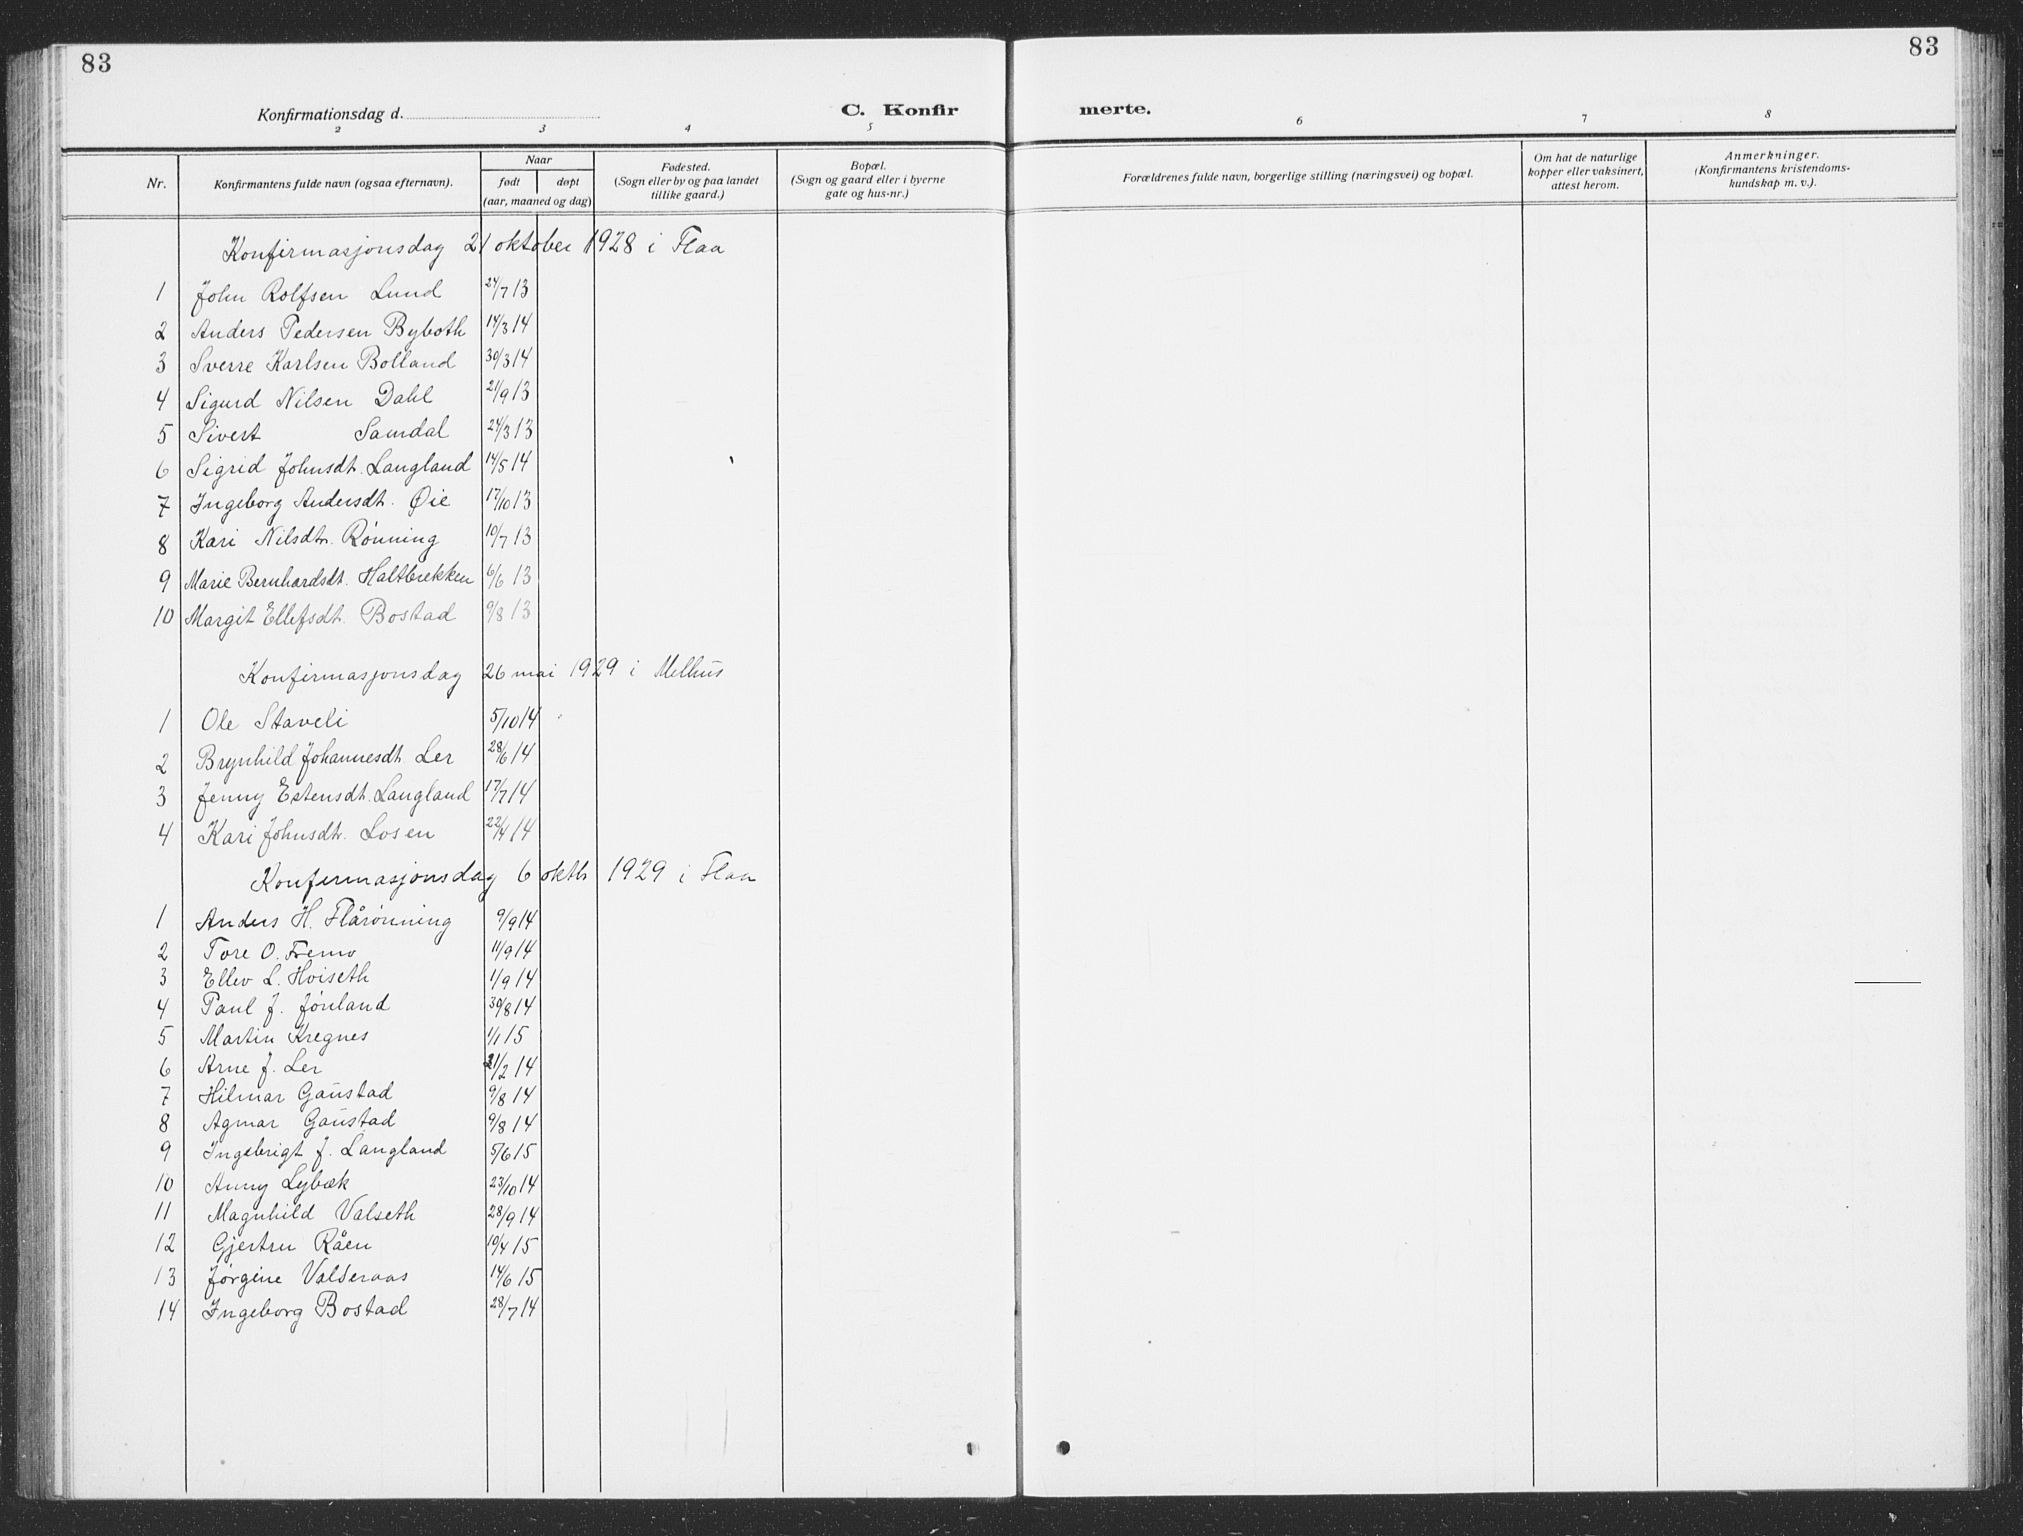 83
83
Konfirmationsdag d.
C. Konfir
merte.
2 3 4 5 6 7 8
Nr.
Konfirmantens fulde navn (ogsaa efternavn).
Naar
født døpt
(aar, maaned og dag)
Fødested.
(Sogn eller by og paa landet
tillike gaard.)
Bopæl.
(Sogn og gaard eller i byerne
gate og hus-nr.)
Forældrenes fulde navn, borgerlige stilling (næringsvei) og bopæl.
Om hat de naturlige
kopper eller vaksinert,
attest herom.
Anmerkninger.
(Konfirmantens kristendoms-
kundskap m. v.).
Konfirmasjonsdag 21 oktober 1928 i Flaa
1 John Rolfsen Lund 24/7 13
2 Anders Pedersen Byboth 14/3 14
3 Sverre Karlsen Bolland 30/3 14
4 Sigurd Nilsen Dahl 21/9 13
5 Sivert Samdal 24/3 13
6 Sigrid Johnsdt. Langland 14/5 14
7 Ingeborg Andersdt. Øie 17/10 13
8 Kari Nilsdtr. Rønning 10/7 13
9 Marie Bernhardsdt. Haltbrekken 6/6 13
10 Margit Ellefsdt. Bostad 9/8 13
Konfirmasjonsdag 26 mai 1929 i Melhus
1 Ole Staveli 5/10 14
2 Brynhild Johannesdt. Ler 28/6 14
3 Jenny Estensdt. Langland 17/7 14
4 Kari Johnsdt. Losen 22/4 14
Konfirmasjonsdag 6 oktb 1929 i Flaa
1 Anders H. Flårønning 9/9 14
2 Tore O. Fremo 11/9 14
3 Ellev L. Hoiseth 1/9 14
4 Paul J. Jønland 30/8 14
5 Martin Kregnes 1/1 15
6 Arne J. Ler 21/2 14
7 Hilmar Gaustad 9/8 14
8 Agmar Gaustad 9/8 14
9 Ingebrigt J. Langland 5/6 15
10 Anny Lybæk 23/10 14
11 Magnhild Valseth 28/9 14
12 Gjertru Råen 10/4 15
13 Jørgine Valderaas 14/6 15
14 Ingeborg Bostad 28/7 14